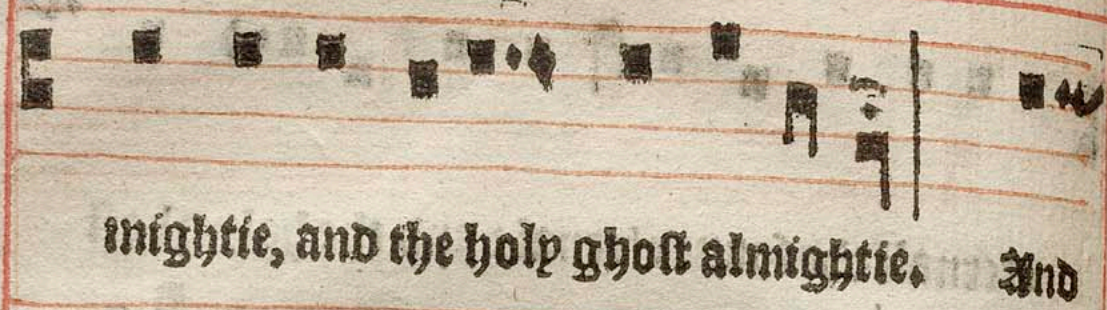 mightie, and the holy ghost almightie. And